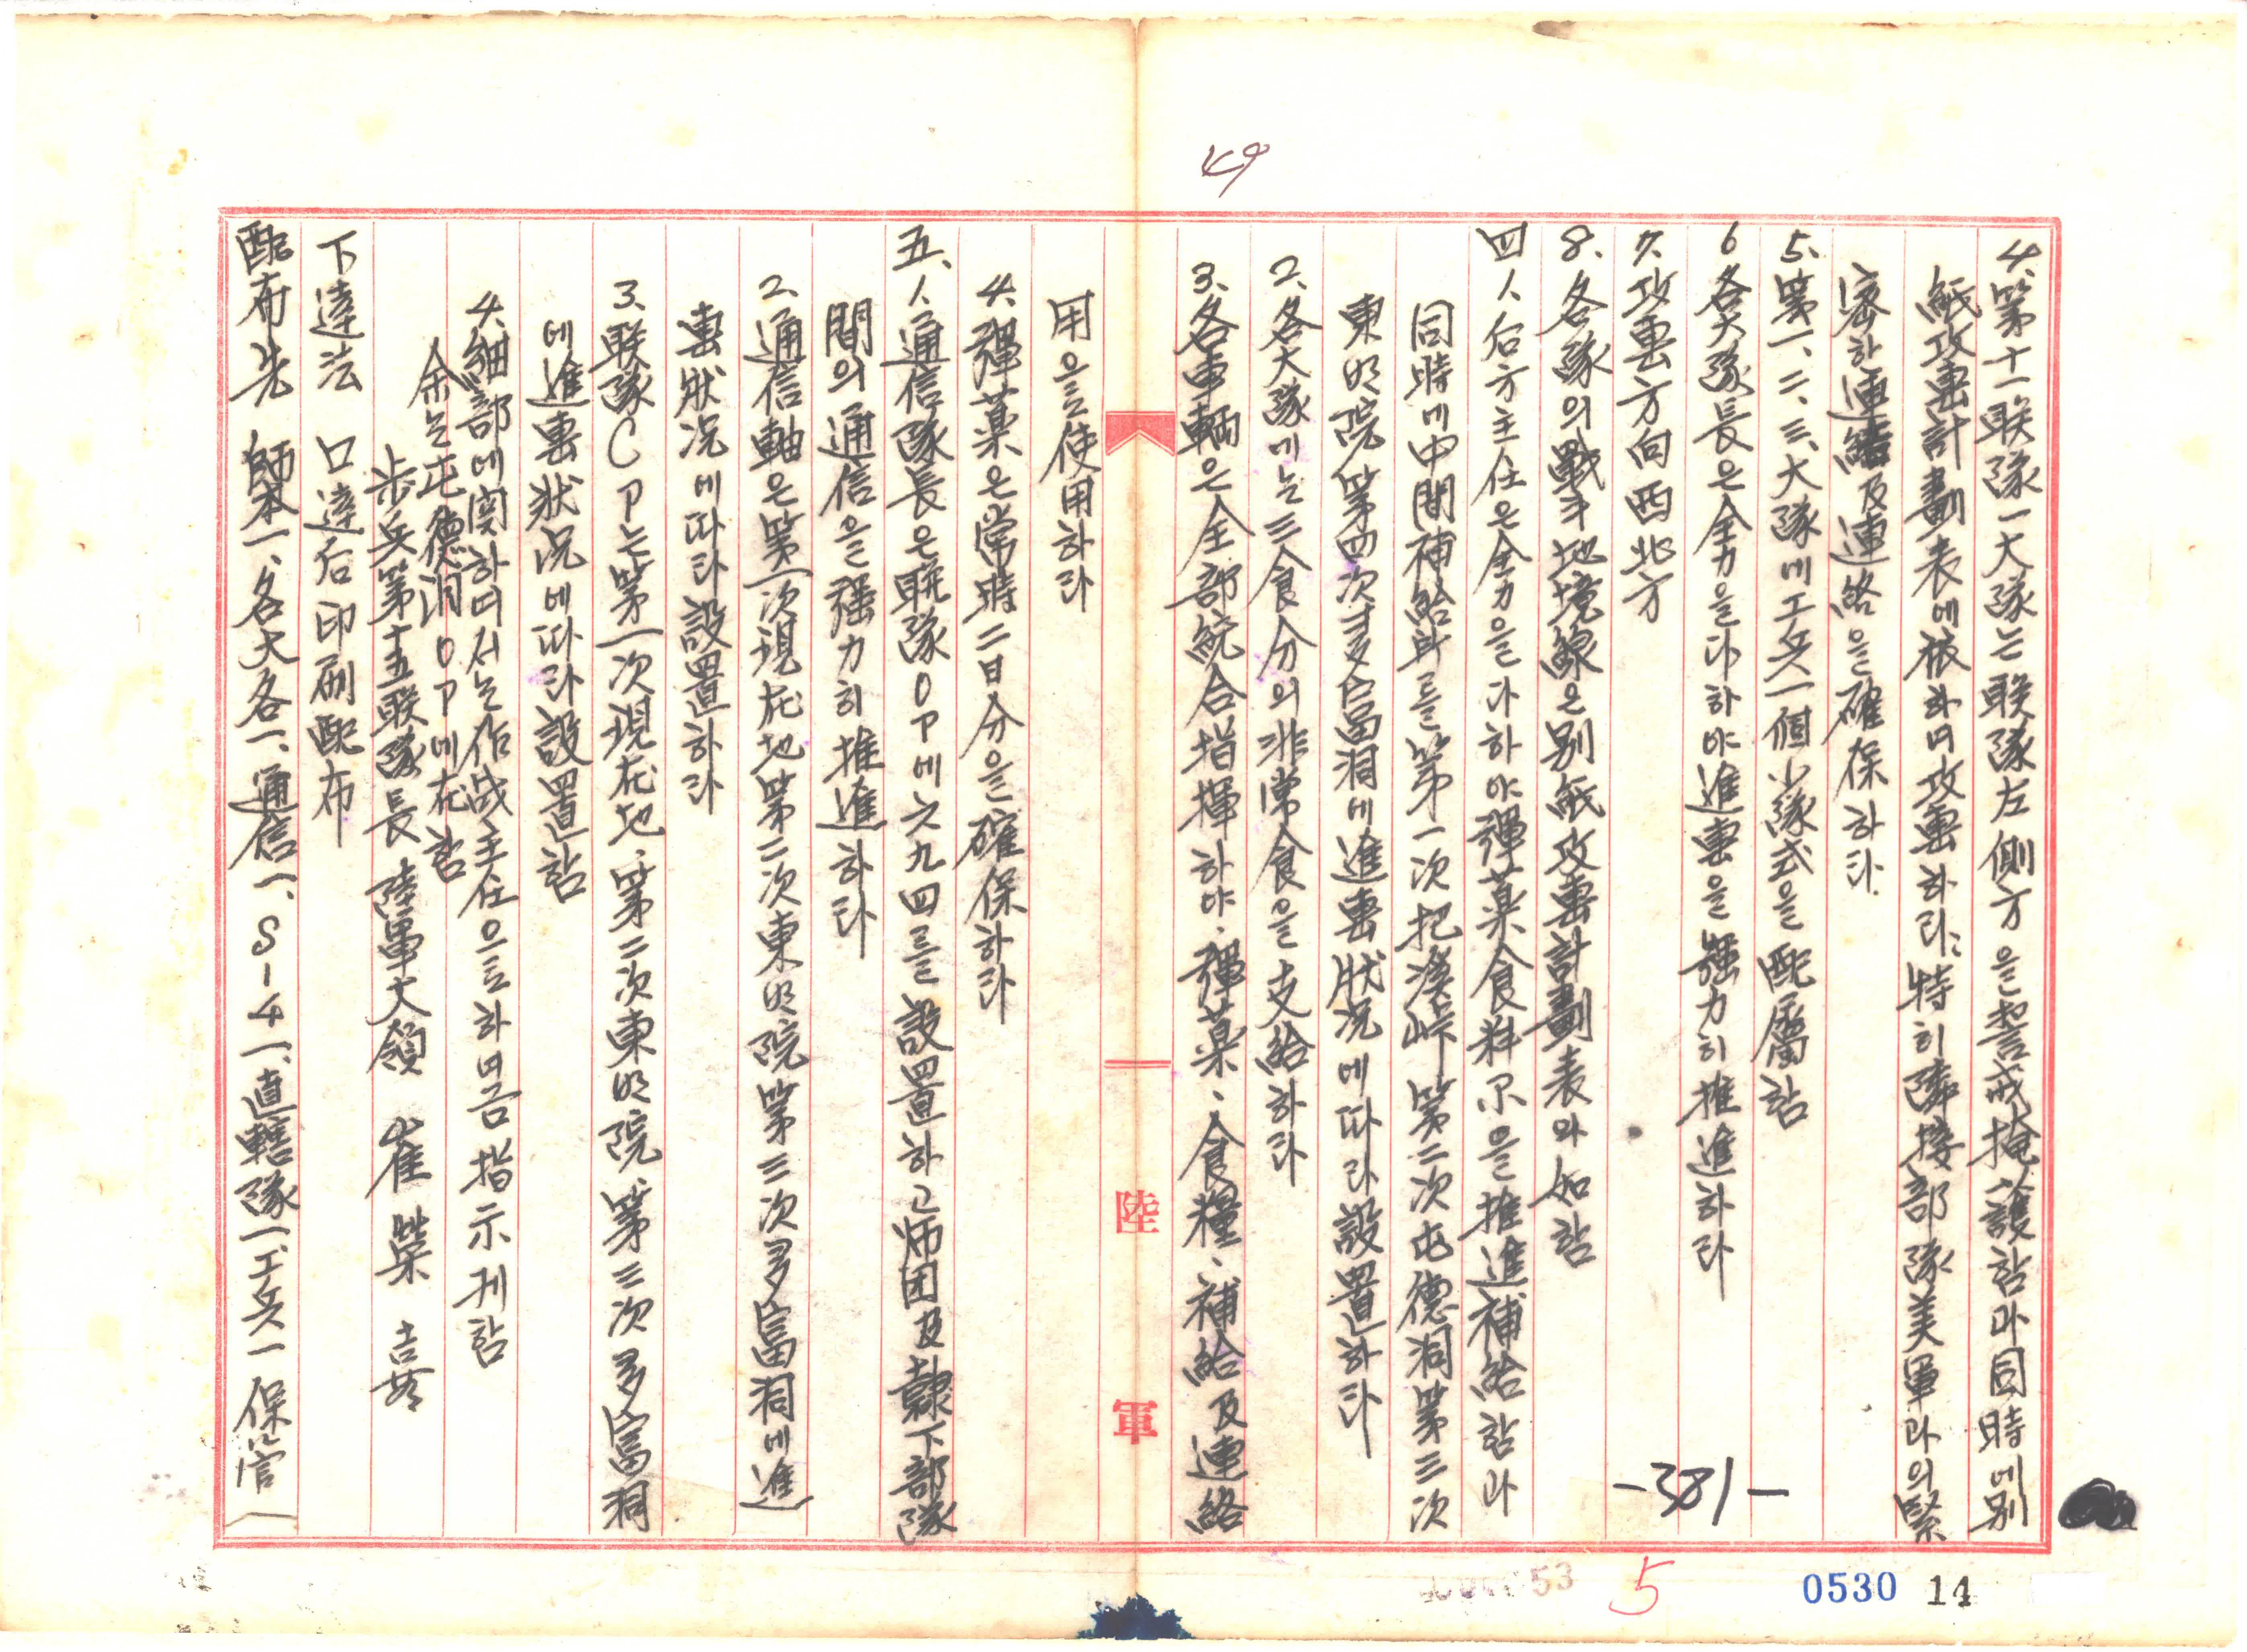 49
4. 第十一联隊一大隊는 联隊左側方을 警戒掩護함과 同時에 別
紙攻撃計劃表에 依하여 攻撃하라. 特히 隣接部隊美軍과의 緊
密한 連繕及連絡을 確保하라.
5. 第一、二、三、大隊에 工兵一個小隊式을 配屬함
6 各大隊長은 全力을 다하야 進撃을 强力히 推進하라
7. 攻撃方向西北方
8. 各隊의 戰斗地境線은 別紙攻撃計劃表와 如함
四 1、后方主任은 全力을 다하야 彈薬食料尔을 推進補給함과
同時에 中間補給所를 第一次把溪峠 第二次屯德洞 第三次
東明院 第四次多富洞에 進撃狀况에따라 設置하라
2、各大隊에는 三食分의 非常食을 支給하라
3、各車輌은 全部統合指揮하야、彈薬、食糧、補給及連絡
用을 使用하라
4. 彈薬은 常時 二日分을 確保하라
五、1、通信隊長은 联隊OP에 六九四를 設置하고 师团及隷下部隊
間의 通信을 强力히 推進하라
2、通信軸은 第一次現在地 第二次東明院 第三次多富洞에 進
撃狀况에 따라 設置하라
3、联隊CP는 第一次現在地、第二次東明院、第三次多富洞
에 進撃狀况에따라 設置함
4、細部에 関하여서는 作战主任으로하여금 指示케함
余는 屯德洞OP에在함
步兵第十五联隊長 陸軍大領 崔榮喜
下達法 口達后印刷配布
配布先 師本一、各大各一、通信一、S-4一、直轄隊一、工兵一 保管一
陸軍
-381-
53
5
0530
14